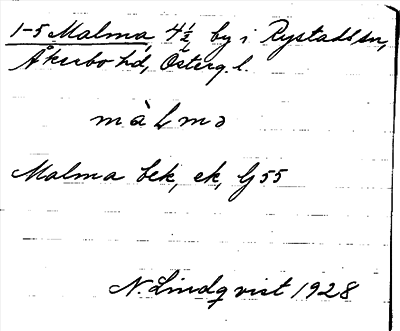 1-5 Malma, 4½, by i Rystads sn,
Åkerbo hd, Österg. l.
màlmə
Malma bek, ek, G 55
N. Lindqvist 1928